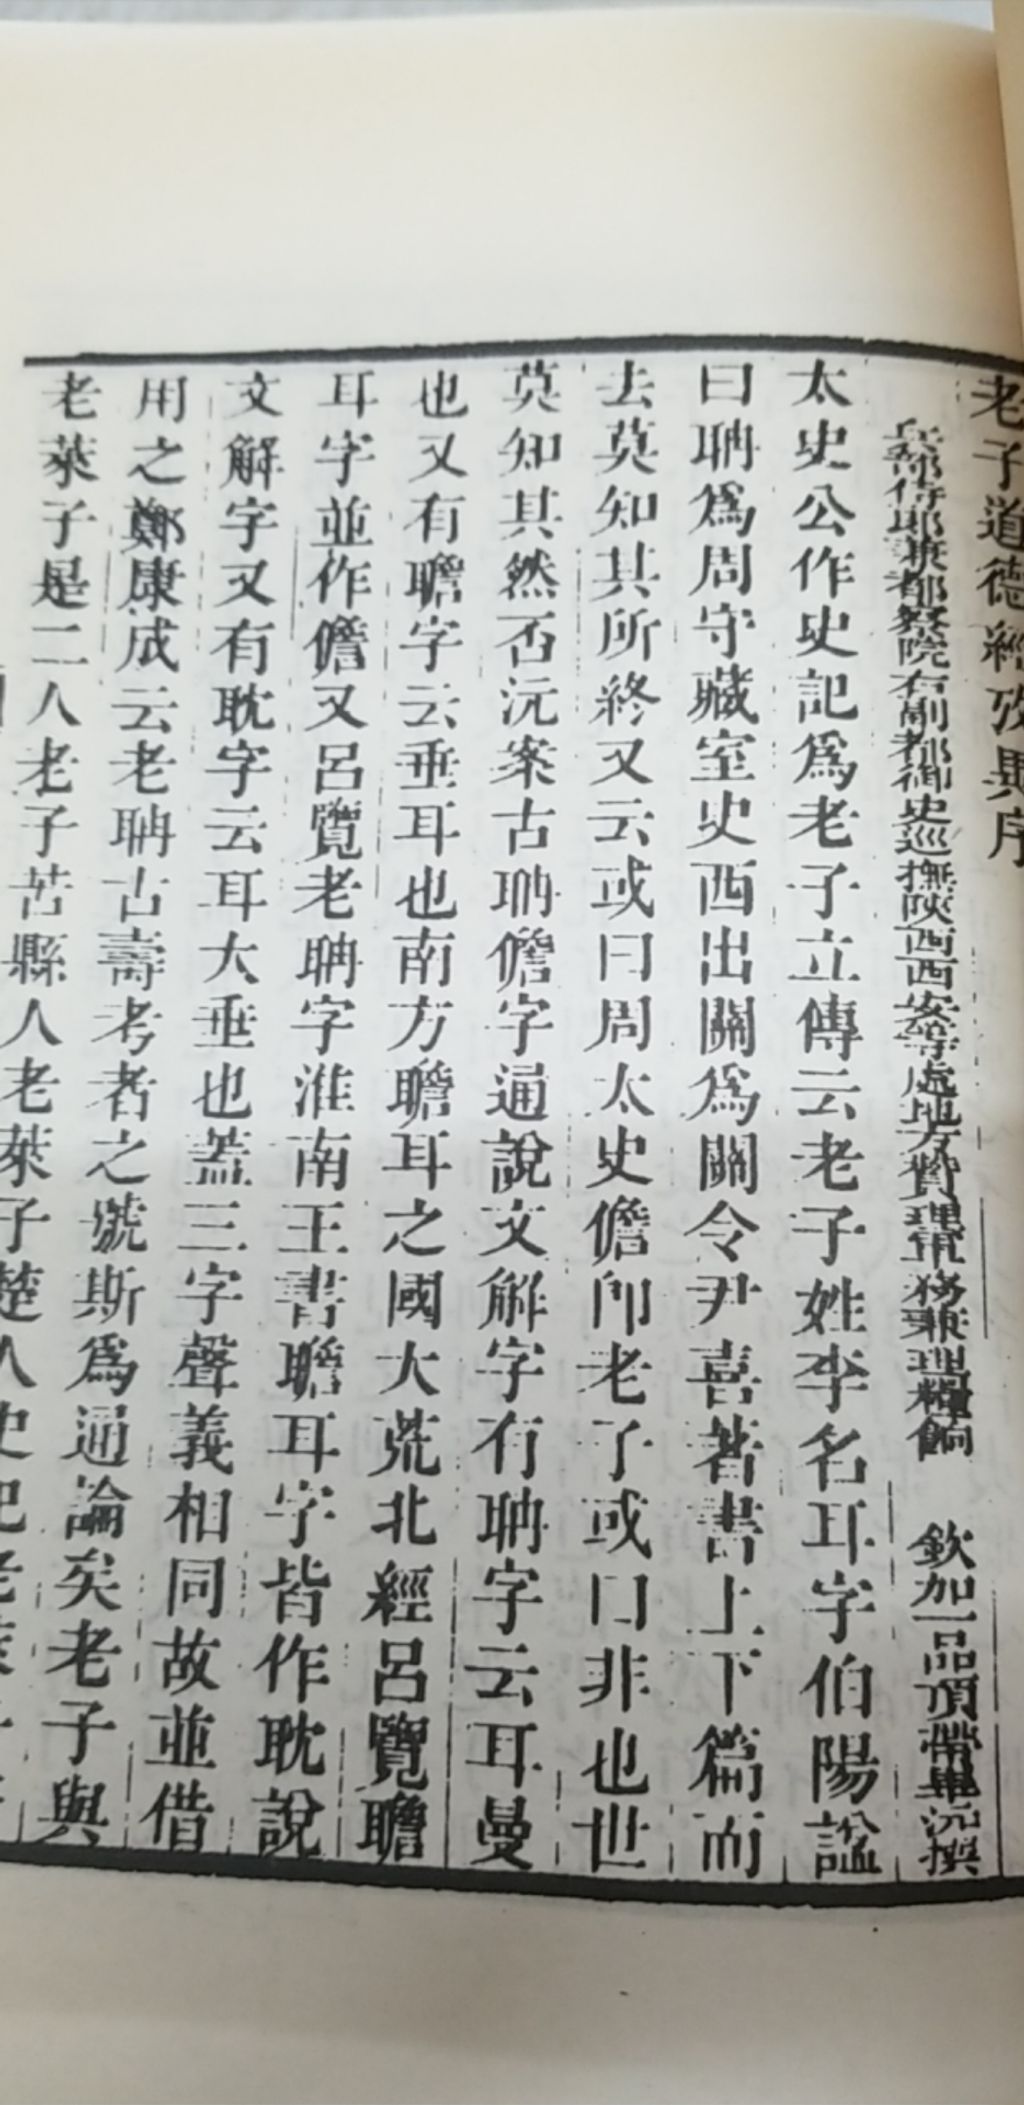 老子道德經攷異序
兵部侍郎兼都察院右副都御史巡撫陝西西安等處地方贊理軍務兼理糧餉 欽加一品頂帶畢沅撰
太史公作史記爲老子立傳云老子姓李名耳字伯陽諡
曰聃爲周守藏室史西出關爲關令尹喜著書上下篇而
去莫知其所終又云或曰周太史儋卽老子或曰非也世
莫知其然否沅案古聃儋字通說文解字有聃字云耳曼
也又有瞻字云垂耳也南方瞻耳之國大荒北經呂覽瞻
耳字並作儋又呂覽老聃字淮南王書瞻耳字皆作耽說
文解字又有耽字云耳大垂也蓋三字聲義相同故並借
用之鄭康成云老聃古壽考者之號斯爲通論矣老子與
老萊子是二人老子苦縣人老萊子楚人史記老萊子